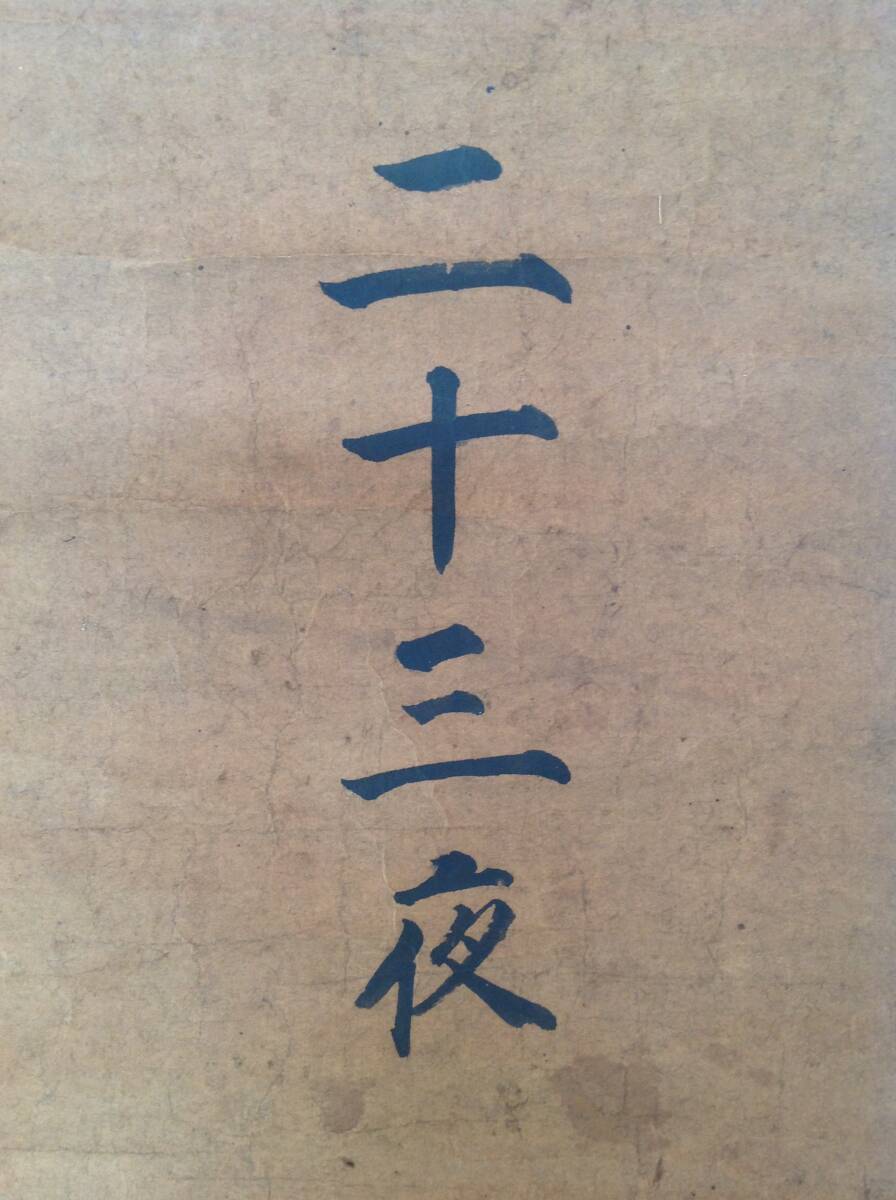 二十三夜